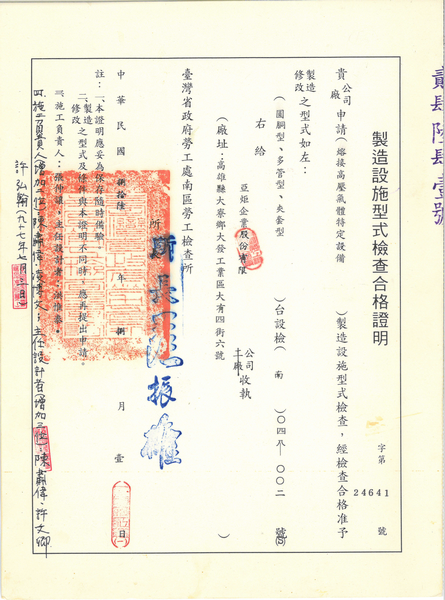 貳肆陸肆壹號
製造設施型式檢查合格證明
字第 24641 號
貴公司廠申請(熔接高壓氣體特定設備)製造設施型式檢查,經檢查合格准予
製造修改之型式如左:
(圓胴型、多管型、夾套型)台設檢(南)〇四八-〇〇二號(S)
右給
亞炬企業股份有限公司工廠收執
(廠址:高雄縣大寮鄉大發工業區大有四街六號)
臺灣省政府勞工處南區勞工檢查所
所長 振雄
中華民國 捌拾陸 年 捌 月 壹 日
註:一、本證明應妥為保存隨時備驗。
二、製造修改之型式及條件與本證明不同時,應再提出申請。
三、施工負責人:張仲讓,主任設計者:
四、施工負責人增加二位:陳肅偉、 主任設計者增加二位:陳肅偉、許文卿
許弘翰 八十七年七月